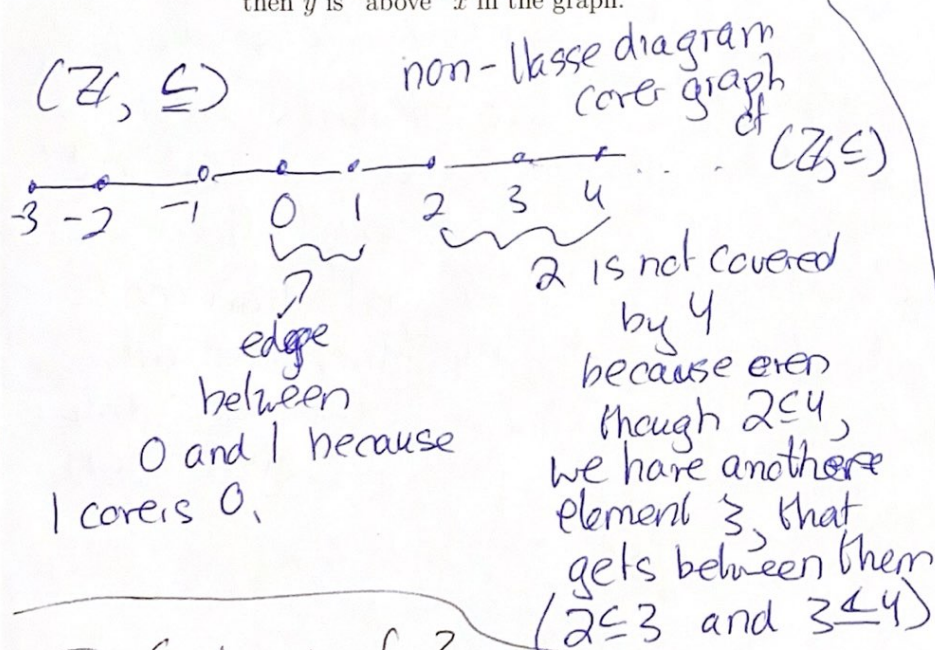 then y is "above" x in the graph.
(ℤ, ≤)
non-Hasse diagram
cover graph
of (ℤ, ≤)
-3 -2 -1 0 1 2 3 4 . . .
?
edge
between
0 and 1 because
1 covers 0.
2 is not covered
by 4
because even
though 2≤4,
we have another
element 3, that
gets between them
(2≤3 and 3≤4)